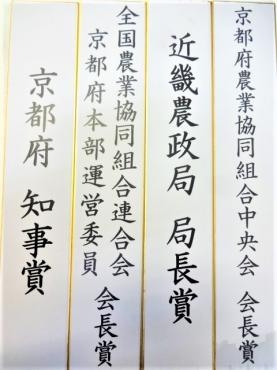 京都府農業協同組合中央会 会長賞
近畿農政局 局長賞
全国農業協同組合連合会
京都府本部運営委員 会長賞
京都府 知事賞